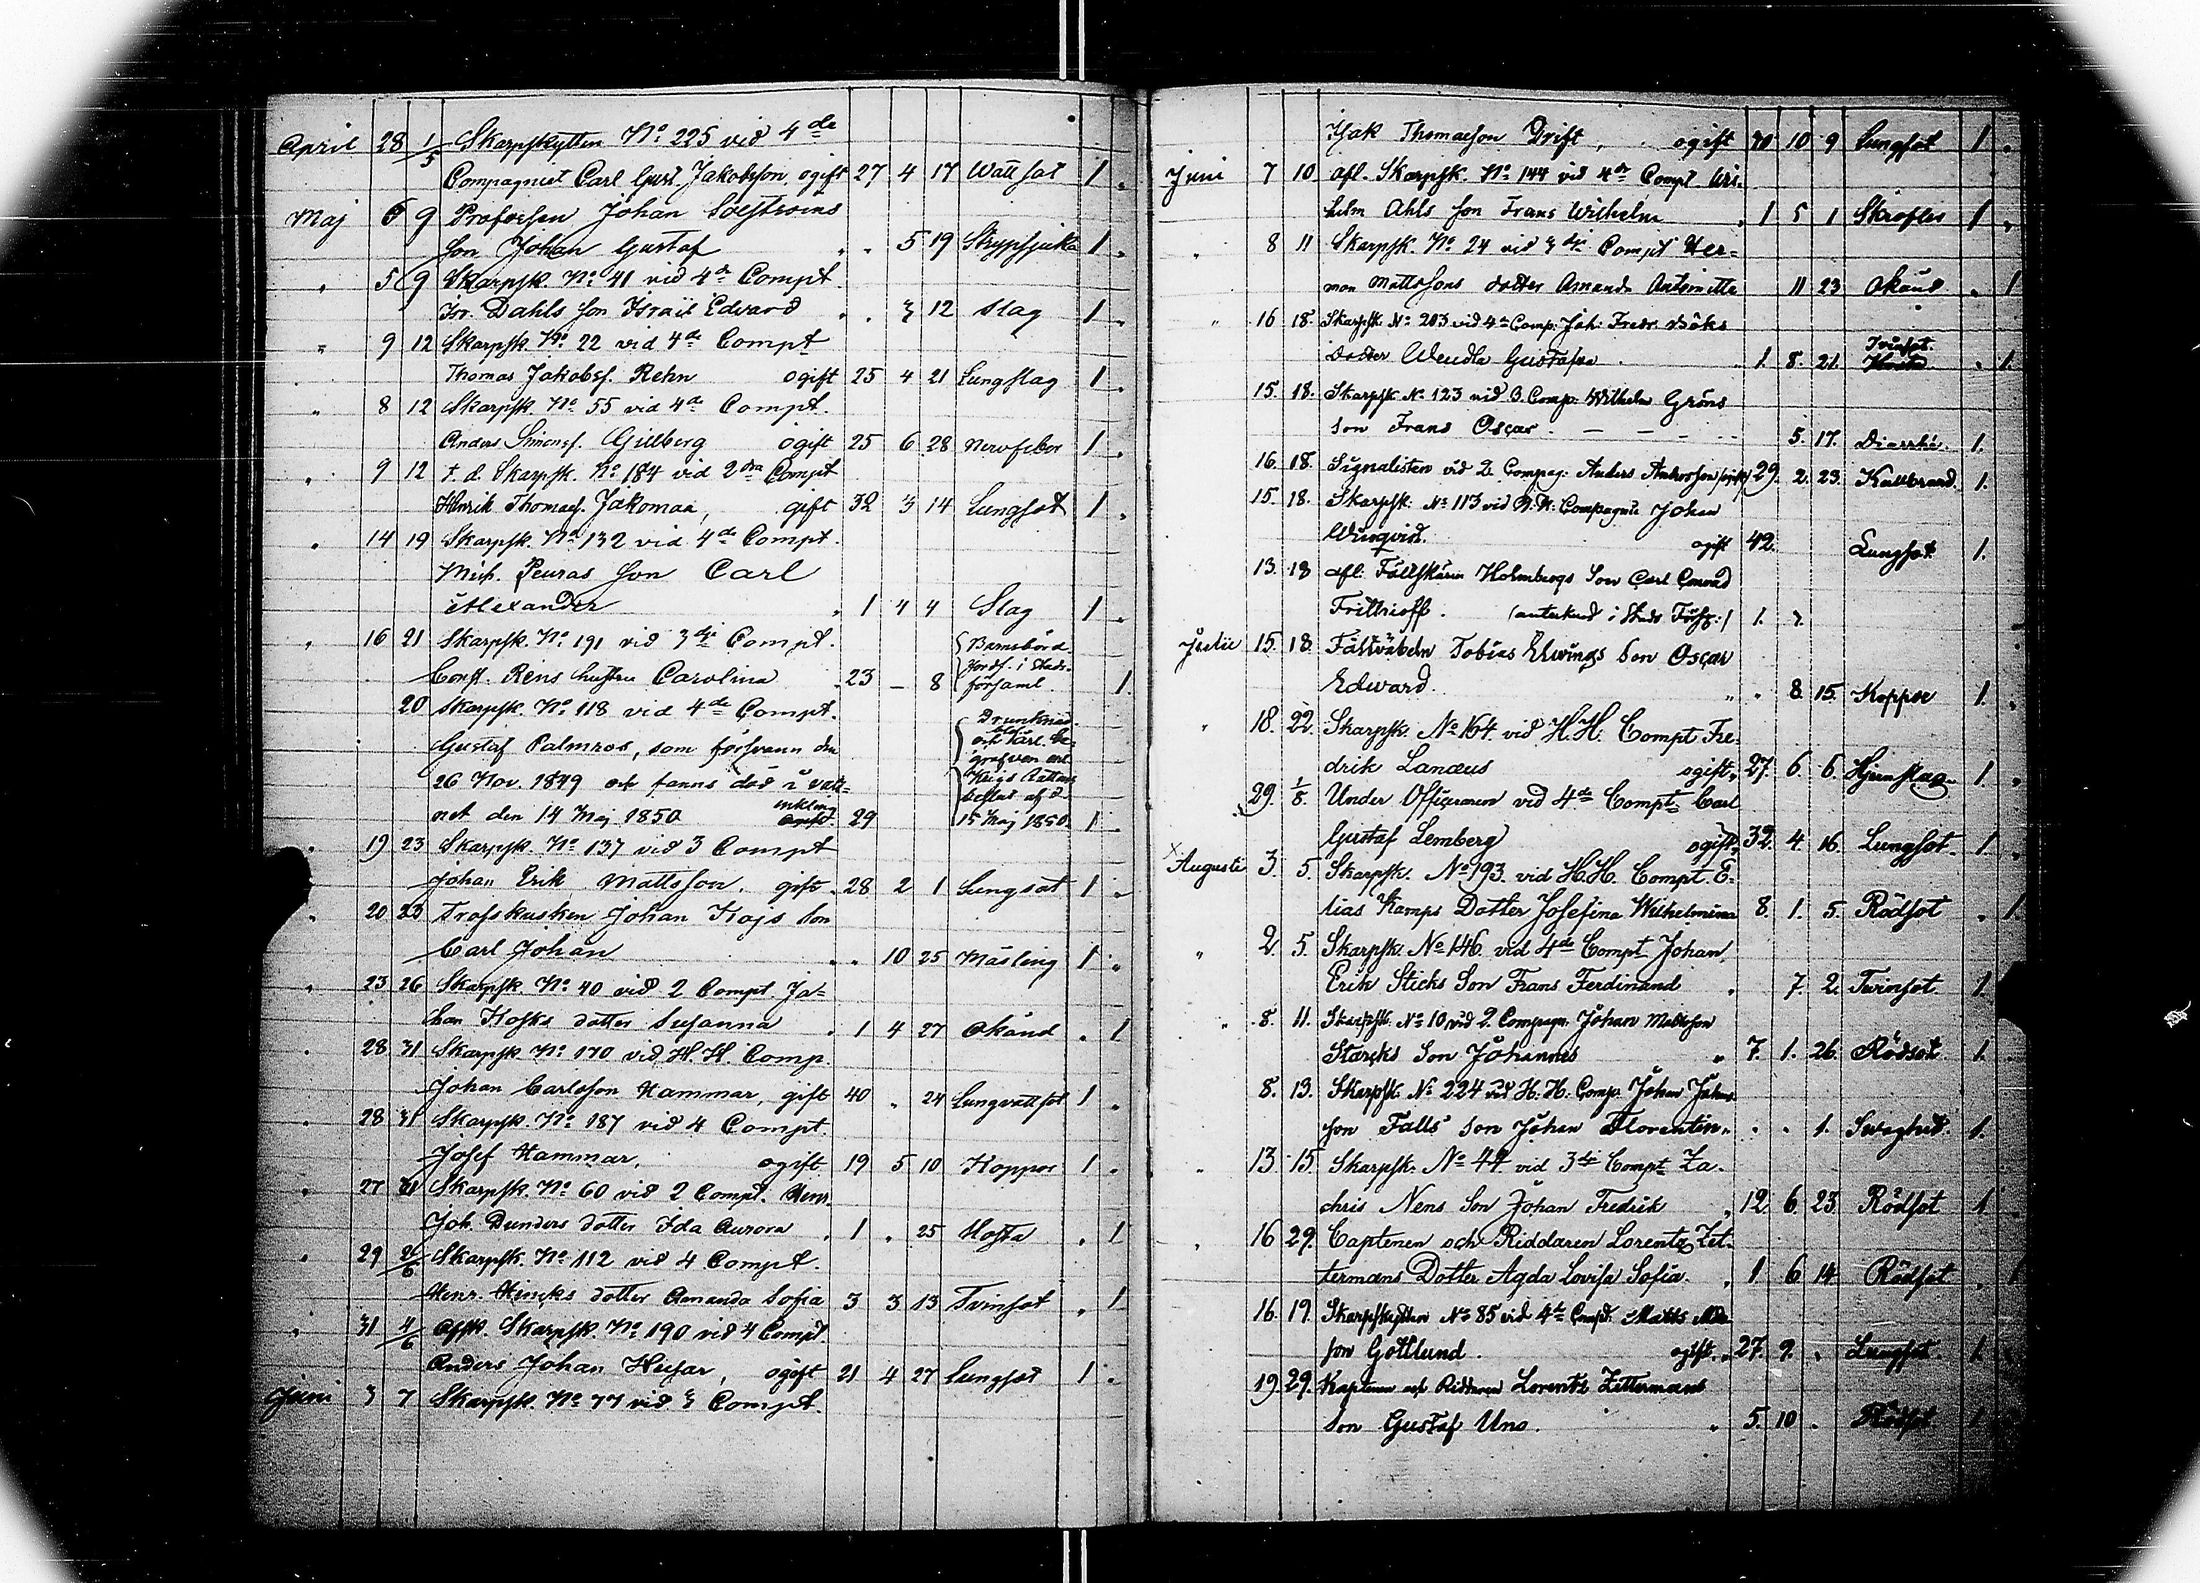 April 28 1/5 Skarpskytten No 225 vid 4de
Compagniet Carl Gust. Jakobsson, ogift 27 4 17 Wattsot 1 "
Maj 6 9 Profossen Johan
son Johan Gustaf " " 5 19 Strypsjuka 1 "
" 5 9 Skarpsk. No 41 vid 4de Compt.
Isr. Dahls son Israël Edvard " " 3 12 Slag 1 "
" 9 12 Skarpsk. No 22 vid 4de Compt
Thomas Jakobss. Rehn ogift 25 4 21 Lungslag 1 "
" 8 12 Skarpsk. No 55 vid 4de Compt.
Anders Simonss. Gillberg ogift 25 6 28 Nervfeber 1 "
" 9 12 f. d. Skarpsk. No 184 vid 2dra Compt
Henrik Thomass. Jakomaa, gift 32 3 14 Lungsot 1 "
" 14 19 Skarpsk. No 132 vid 4de Compt.
Mich. Peuras son Carl
Alexander " 1 4 4 Slag 1 "
" 16 21 Skarpsk. No 191 vid 3dje Compt. Barnsbörd.
Const. Rens hustru Carolina 23 – 8 Jordf. i Stads-
församl. 1.
20 Skarpsk. No 118 vid 4de Compt.
Gustaf Palmros, som försvann den Drunknad
26 Nov. 1849 och fanns död i vatt=
net den 14 Maj 1850 ogift. 29 15 Maj 1850. 1 "
" 19 23 Skarpsk. No 137 vid 3 Compt
Johan Erik Mattsson, gift 28 2 1 Lungsot 1 "
" 20 23 Trosskusken Johan Kojs son
Carl Johan " " 10 25 Mäsling 1 "
" 23 26 Skarpsk. No 40 vid 2 Compt Jo=
han Kosks dotter Susanna " 1 4 27 okänd " 1
" 28 31 Skarpsk. No 170 vid H. H. Comp.
Johan Carlsson Hammar, gift 40 " 24 Lungvattsot 1 "
" 28 31 Skarpsk. No 187 vid 4 Compt.
Josef Hammar, ogift 19 5 10 Koppor 1 "
" 27 31 Skarpsk. No 60 vid 2 Compt. Henr.
Joh. Dunders dotter Ida Aurora " 1 " 25 Hosta " 1
" 29 2/6 Skarpsk. No 112 vid 4 Compt.
Henr. Hincks dotter Amanda Sofia 3 3 13 Tvinsot " 1
" 31 4/6 Afsk. Skarpsk. No 190 vid 4 Compt.
Anders Johan Husar, ogift 21 4 27 Lungsot 1 "
Juni 3 7 Skarpsk. No 77 vid 3 Compt.
Isak Thomasson Drift, ogift 70 10 9 Lungsot 1 "
Juni 7 10 afl. Skarpsk. No 144 vid 4de Compt Wil-
helm Ahls son Frans Wilhelm " 1 5 1 Skrofler 1 "
" 8 11 Skarpsk. No 24 vid 3dje Compt Her=
man Mattssons dotter Amanda Antoinetta 11 23 okänd " 1
" 16 18. Skarpsk. No 203 vid 4de Comp. Joh. Fredr. Böks
dotter Wendla Gustafva " 1. 8. 21. Tvinsot. " 1.
15. 18. Skarpsk. No 123 vid 3. Comp. Wilhelm Gröns
son Frans Oscar. – – – 5. 17. Diarrhé. 1.
16. 18. Signalisten vid 2 Compag. Anders Andersson 29. 2. 23. Kallbrand. 1.
15. 18. Skarpsk. No 113 vid H. H. Compagnie Johan
ogift 42. Lungsot 1.
13. 18 afl. Fältskären Holmbergs Son Carl Conrad
Frithioff. (antecknad i Stads Förs:) 1. 7.
Julii 15. 18. Fältväbeln Tobias Elvings Son Oscar
Edward. " " 8. 15. Koppor 1. "
" 18. 22. Skarpsk. No 164. vid H. H. Compt Fre-
drik Landus ogift, 27. 6. 6. Hjernslag 1 "
29. 1/8. Under Officeraren vid 4de Compt Carl
Gustaf Lemberg ogift, 32. 4. 16. Lungsot. 1. "
x Augusti 3. 5. Skarpsk. No 193. vid H. H. Compt. E-
lias Kamps Dotter Josefina Wilhelmina 8. 1. 5. Rödsot " 1.
" 2 5. Skarpsk. No 146. vid 4de Compt Johan
Erik Sticks Son Frans Ferdinand " 7. 2. Tvinsot. 1.
" 8. 11. Skarpsk. No 10 vid 2. Compagn. Johan Mattsson
Starcks Son Johannes " 7. 1. 26. Rödsot. 1.
8. 13. Skarpsk. No 224 vid H. H. Comp. Johan Johans
son Falls Son Johan Florentin " " " 1. Svaghet. 1.
" 13. 15. Skarpsk. No 44 vid 3dje Compt Za-
chris Nens Son Johan Fredrik " 12 6. 23. Rödsot 1
" 16 29. Captenen och Riddaren Lorentz Zet-
termans Dotter Agda Lovisa Sofia. " 1 6 14 Rödsot " 1
16. 19. Skarpskytten No 85 vid 4de Compt. Matts Mats
son Gottlund. ogift. 27. 9. " Lungsot. 1.
19 29. Kaptenen och Riddaren Lorentz Zettermans
Son Gustaf Uno. " 5. 10 " Rödsot 1